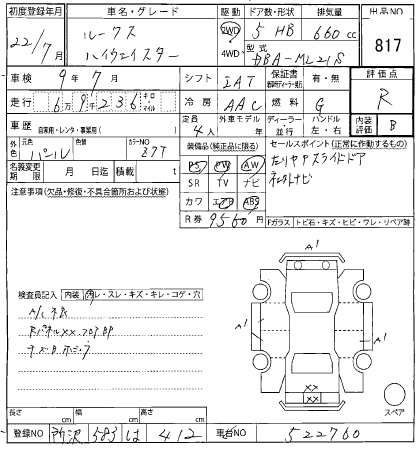 初度登録年月 車名・グレード 駆動 ドア数・形状 排気量 出品NO
22/7月 ルークス ハイウェイスター 2WD 4WD 5 HB 660cc 817
型式 DBA-ML21S
車検 9年7月 シフト IAT 保証書 有・無 評価点
走行 6万9千236 キロ・マイル 冷房 AAC 燃料 G R
車歴 自家用・レンタ・事業用( ) 定員 4人 外車モデル 年 ディーラー 並行 ハンドル 左・右 内装評価 B
外色 元色 パール 色替 カラーNO Z7T 装備品(純正品に限る) セールスポイント(正常に作動するもの)
名義変更期限 月 日 積載 t PS PW AW
注意事項(欠品・修復・不具合箇所および状態) SR TV ナビ
カワ エアB ABS
R券 9560円 Fガラス トビ石・キズ・ヒビ・ワレ・リペア跡
A1
検査員記入 内装 レ・スレ・キズ・キレ・コゲ・穴
A1 A1
XX
XX
A1
スペア
長さ cm 幅 cm 高さ cm
登録NO 所沢 583 は 412 車台NO 522760